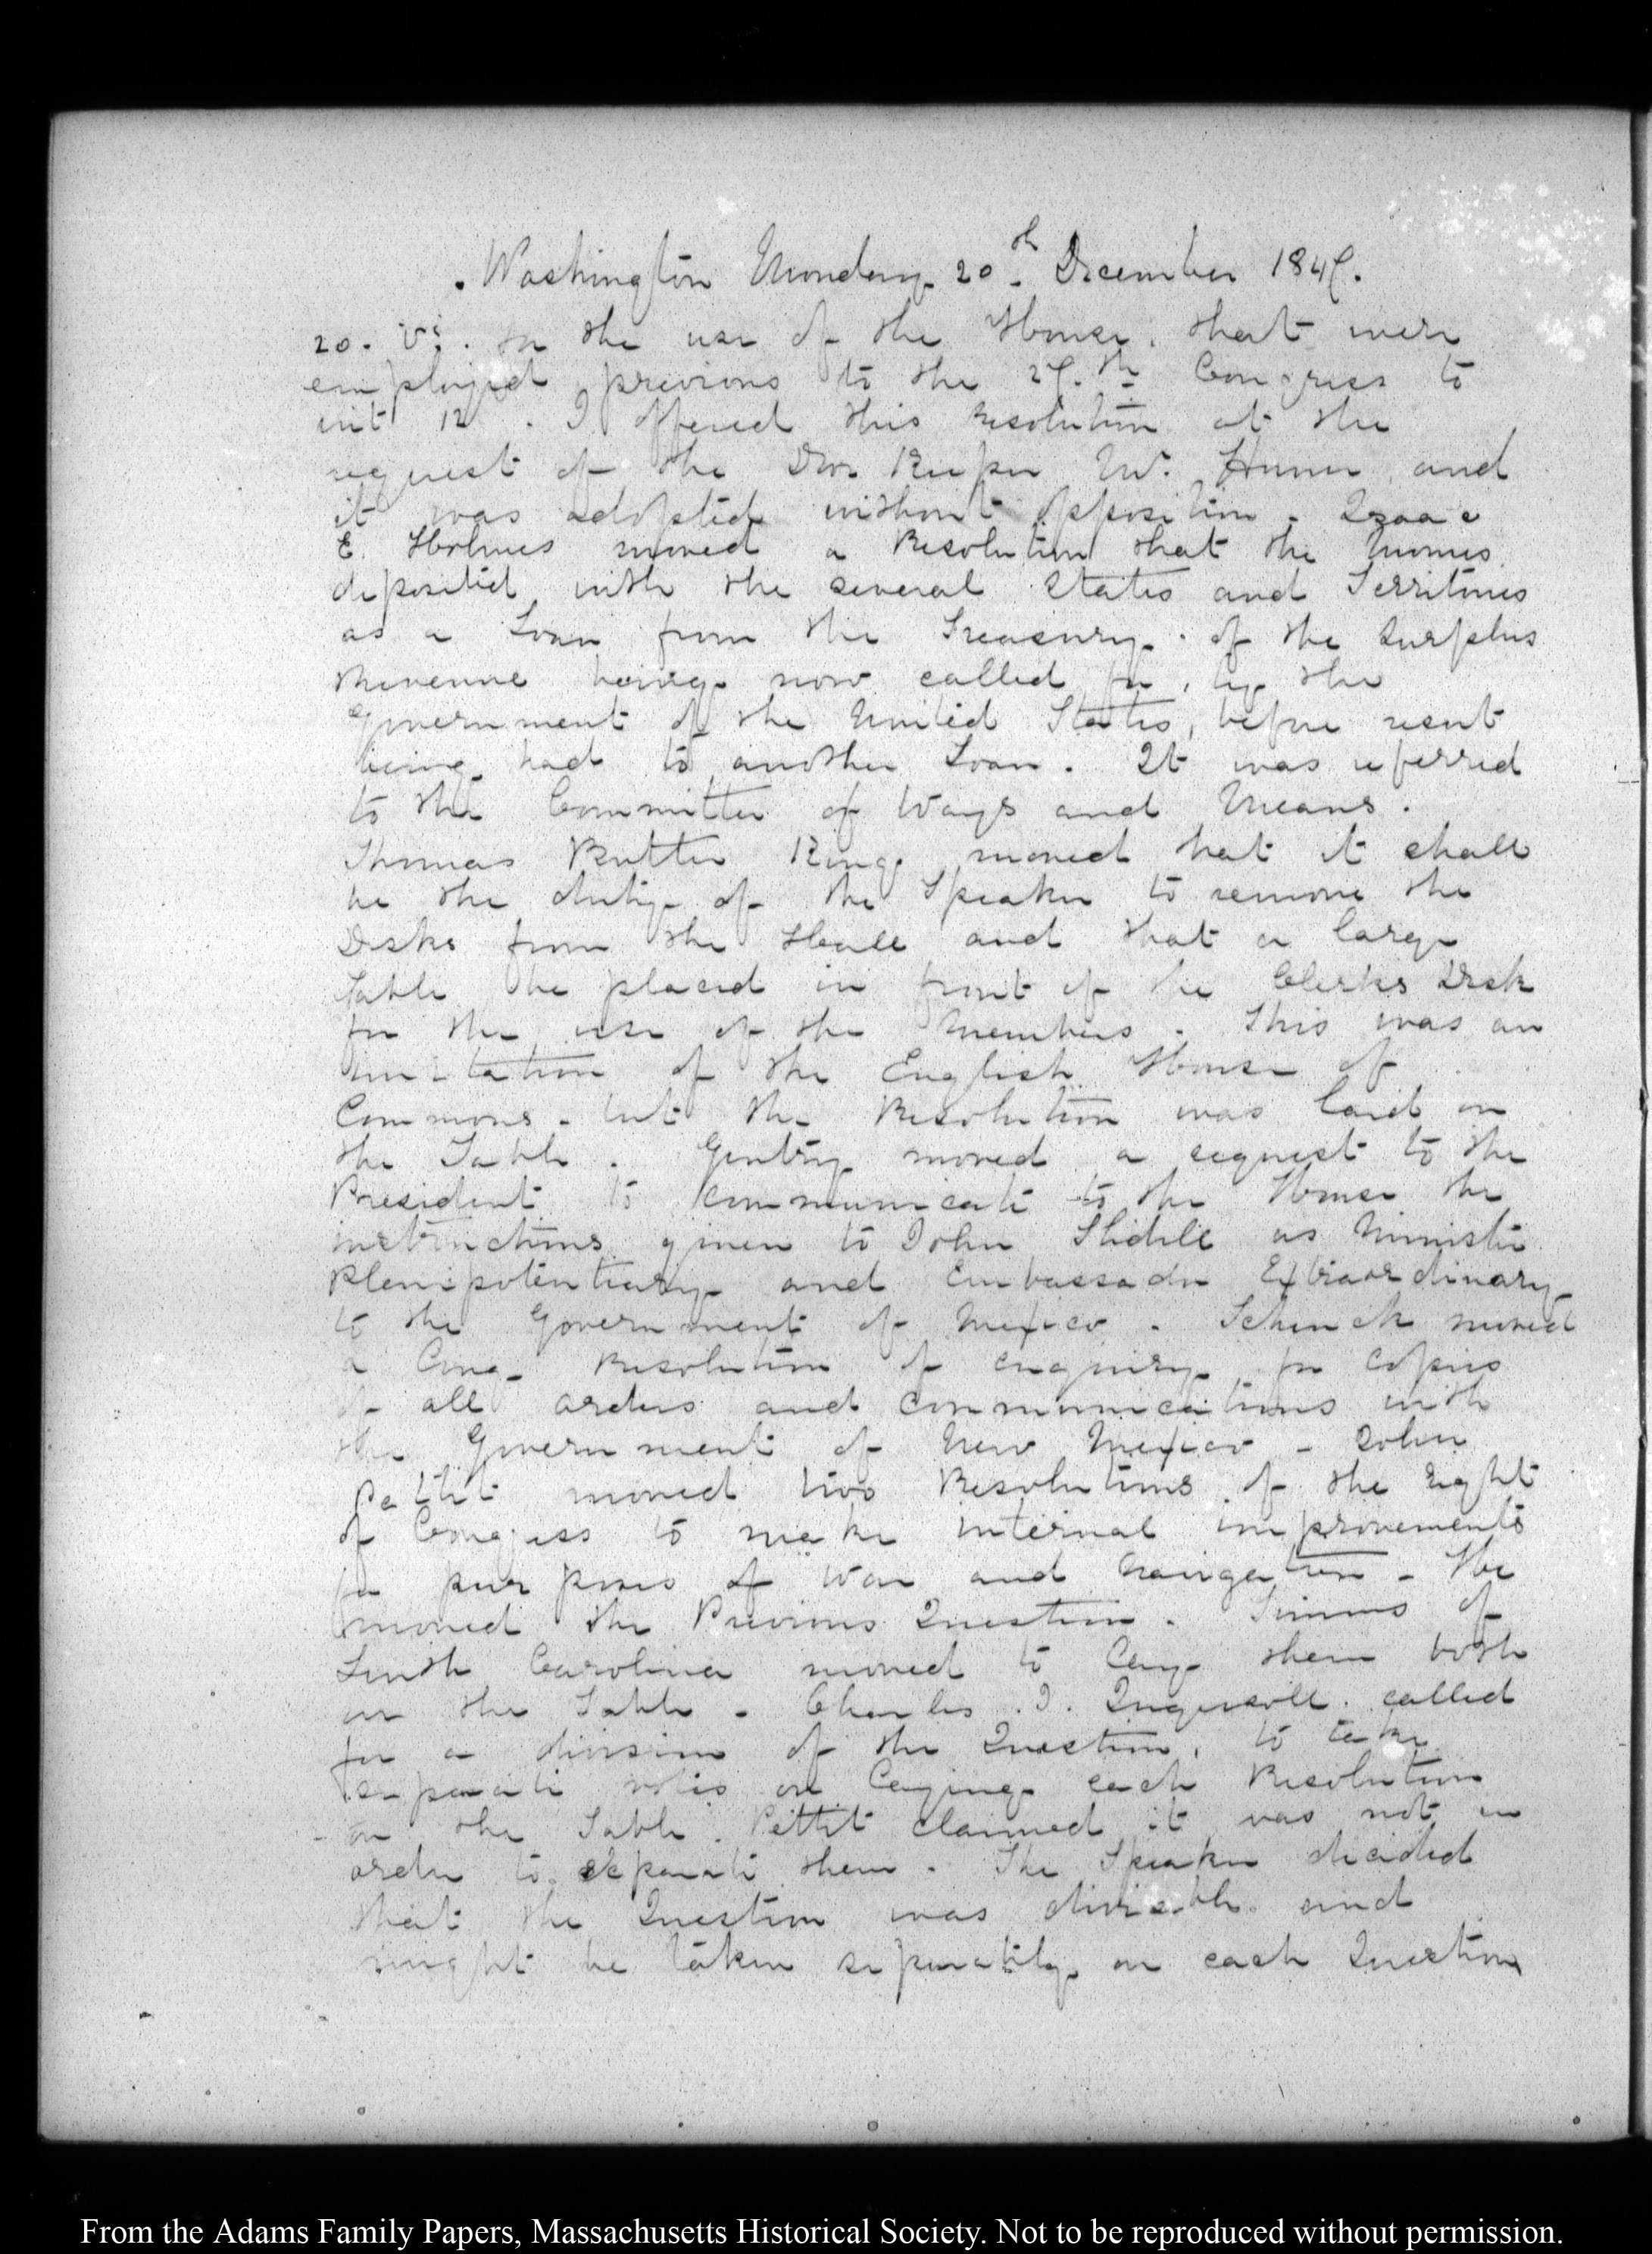 Washington Monday 20th December 1847.
20. VI. for the use of the House, that were
employed previous to the 27.th Congress to
wit 12. I offered this Resolution at the
request of the Door Keeper Mr. Horner and
it was adopted without opposition - Isaac
E. Holmes moved a Resolution that the Monies
deposited with the several States and Territories
as a Loan from the Treasury. of the Surplus
Revenue being now called for, by the
Government of the United States, before resort
being had to another Loan. It was referred
to the Committee of Ways and Means.
Thomas Butler King moved that it shall
be the duty of the Speaker to remove the
Desks from the Hall and that a large
Table be placed in front of the Clerks Desk
for the use of the Members. This was an
imitation of the English House of
Commons - but the Resolution was laid on
the Table. Gentry moved a request to the
President to communicate to the House the
instructions given to John Slidell as Minister
Plenipotentiary and Embassador Extraordinary
to the Government of Mexico. Schenck moved
a long Resolution of enquiry for Copies
of all orders and communications with
the Government of New Mexico - John
Pettit moved two Resolutions of the right
of Congress to make internal improvements
for purposes of War and Navigation - He
moved the Previous Question. Simms of
South Carolina moved to lay them both
on the Table - Charles J. Ingersoll called
for a division of the Question, to take
separate votes on laying each Resolution
on the Table. Pettit claimed it was not in
order to separate them. The Speaker decided
that the Question was divisible and
might be taken separately on each Question
From the Adams Family Papers, Massachusetts Historical Society. Not to be reproduced without permission.